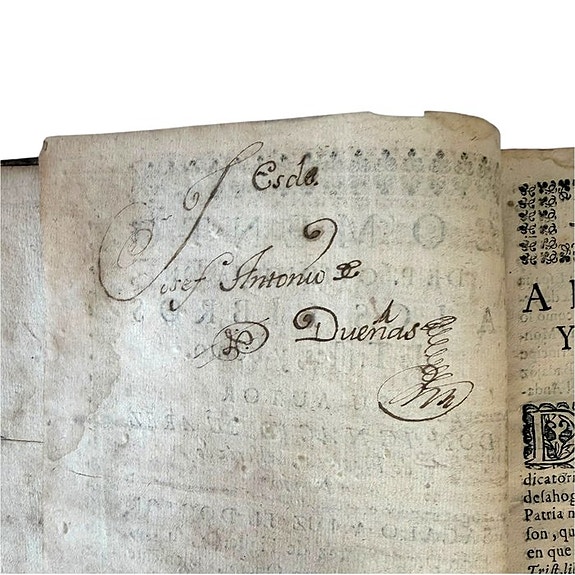 Es de
Josef Antonio de
Dueñas
A
Y
D
dicatori
desahog
Patria n
son, qu
en que
Trist. li